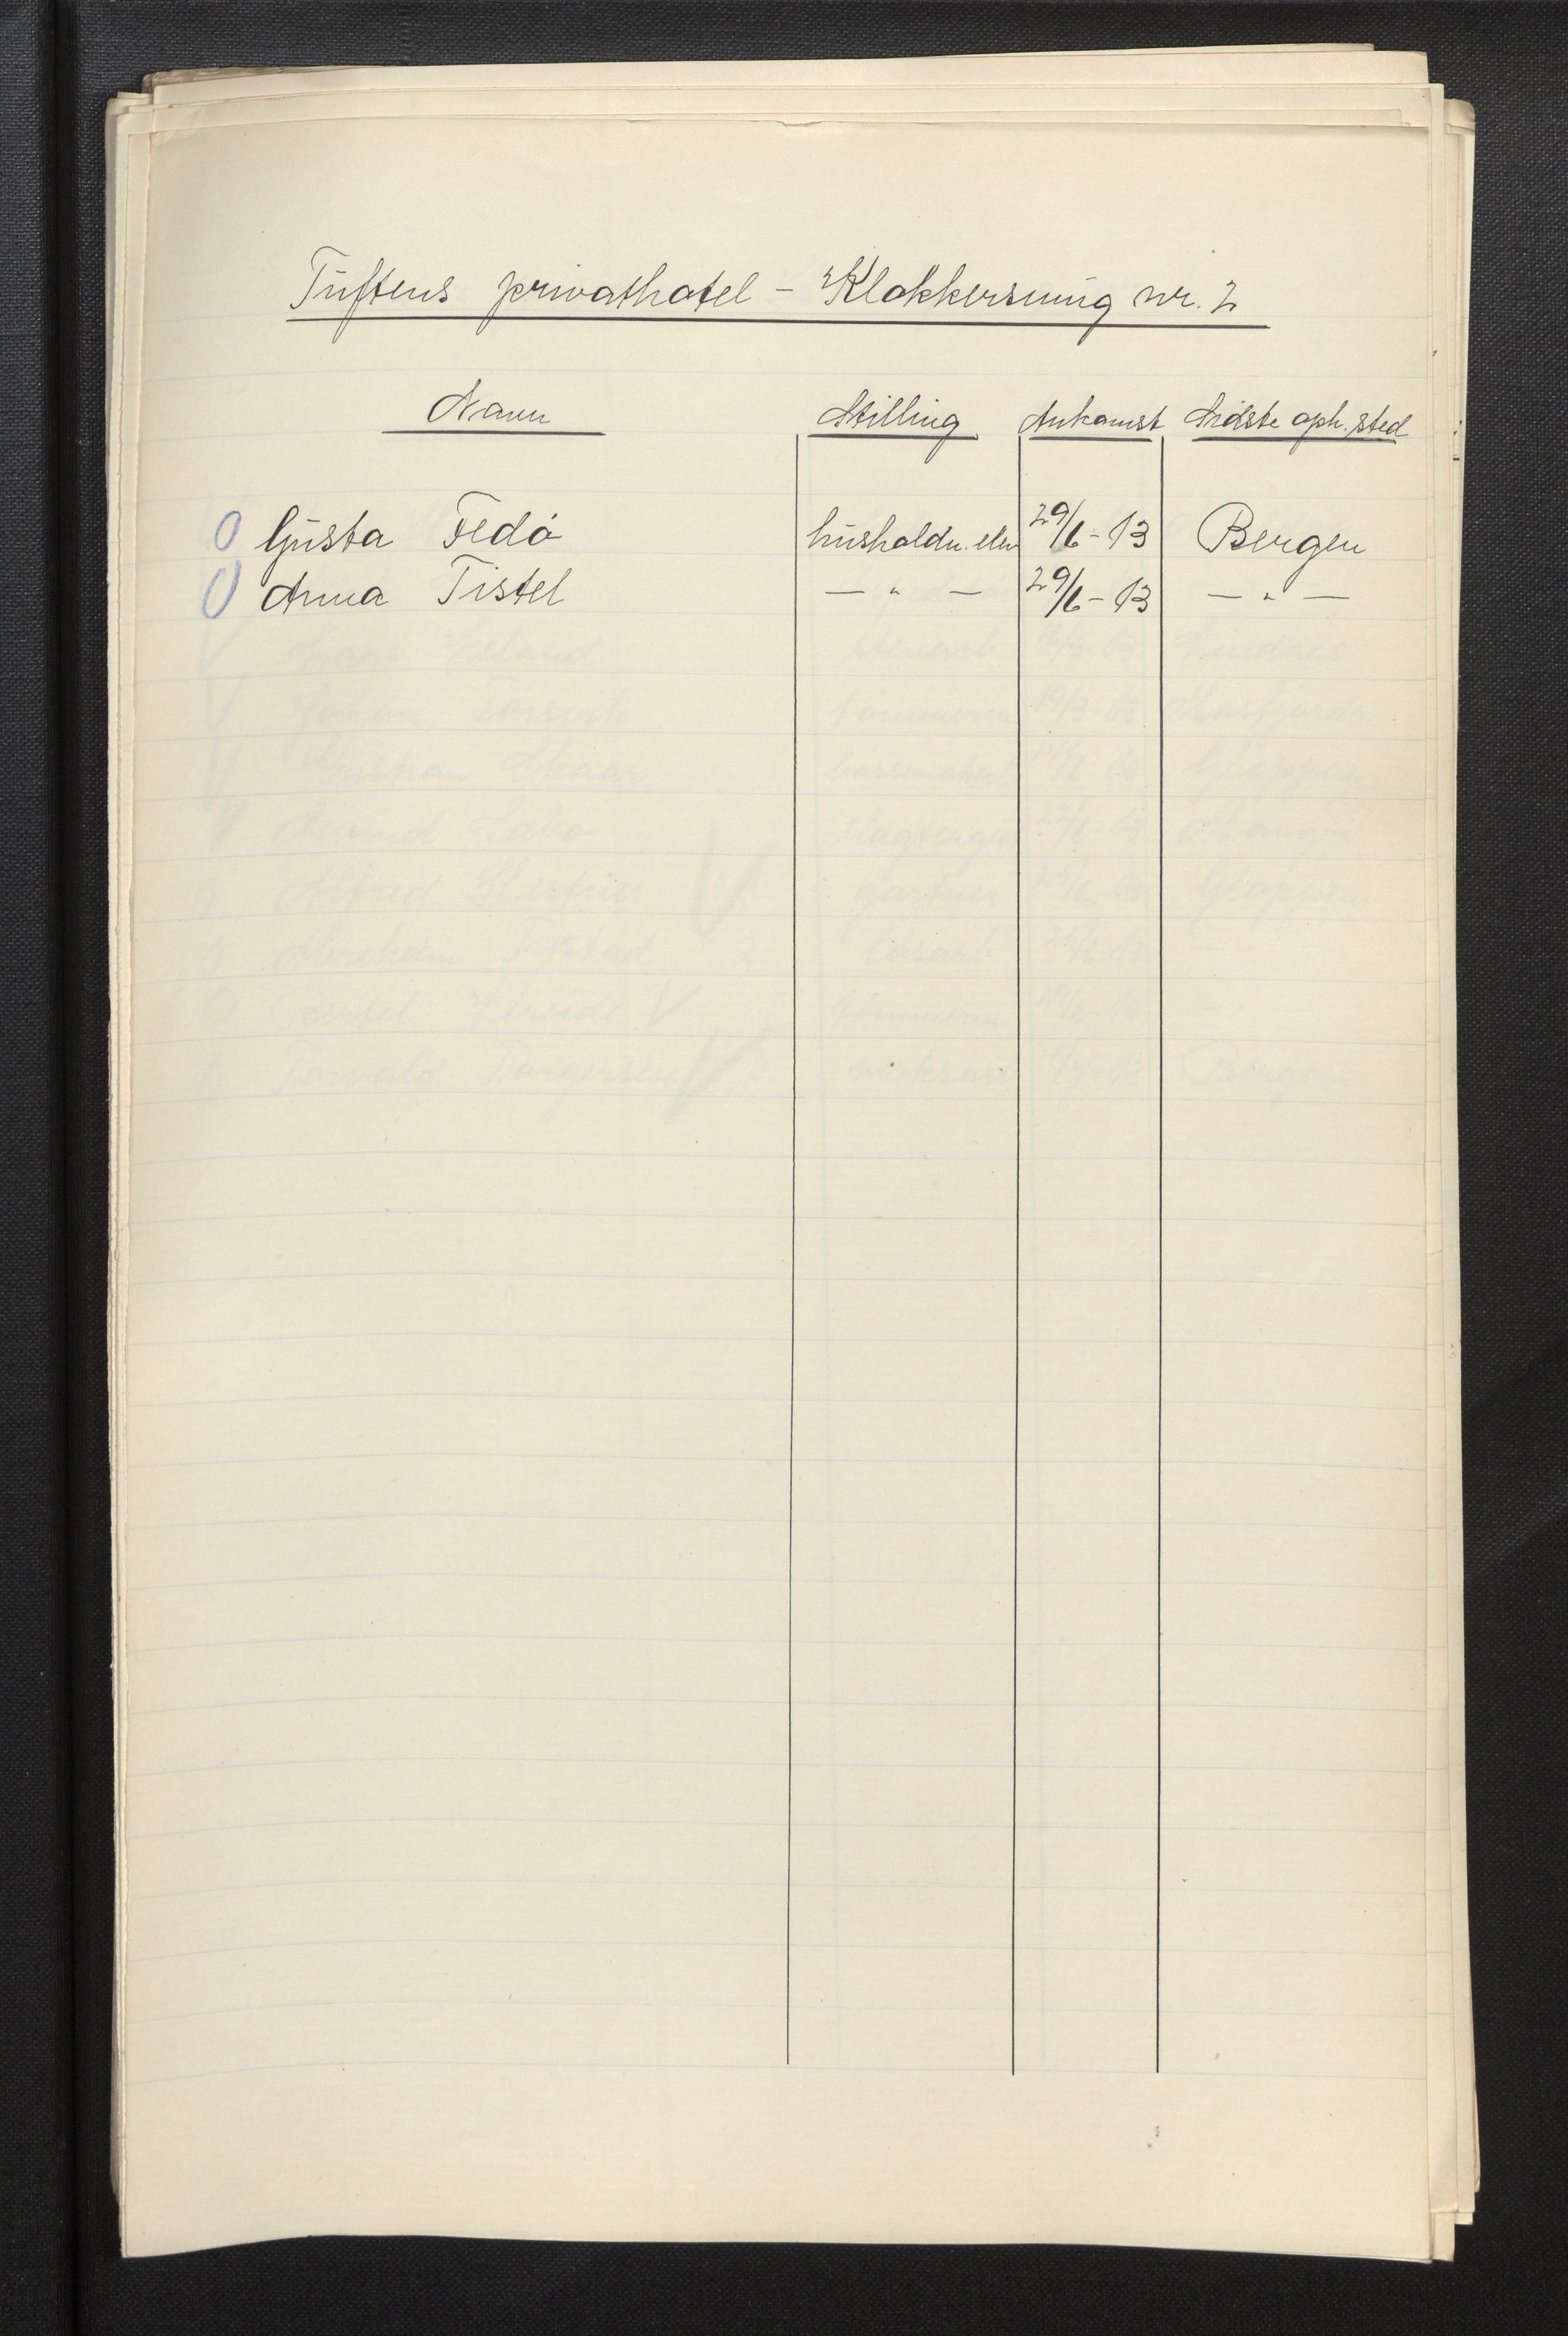 Tuftens privathotel - Klokkersmug nr. 2
Navn Stilling Ankomst Sidste oph. sted
0 Gusta Fedø husholdn. elev 29/6 - 13 Bergen
0 Anna Tistel — " — 29/6 - 13 — " —